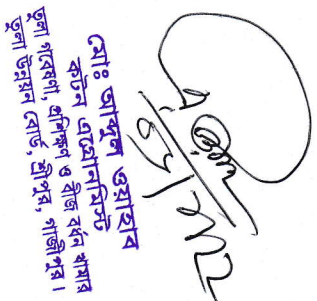 মোঃ আব্দুল ওয়াহাব
কটন এগ্রোনমিস্ট
তুলা গবেষণা, প্রশিক্ষণ ও বীজ বর্ধন খামার
তুলা উন্নয়ন বোর্ড, শ্রীপুর, গাজীপুর।